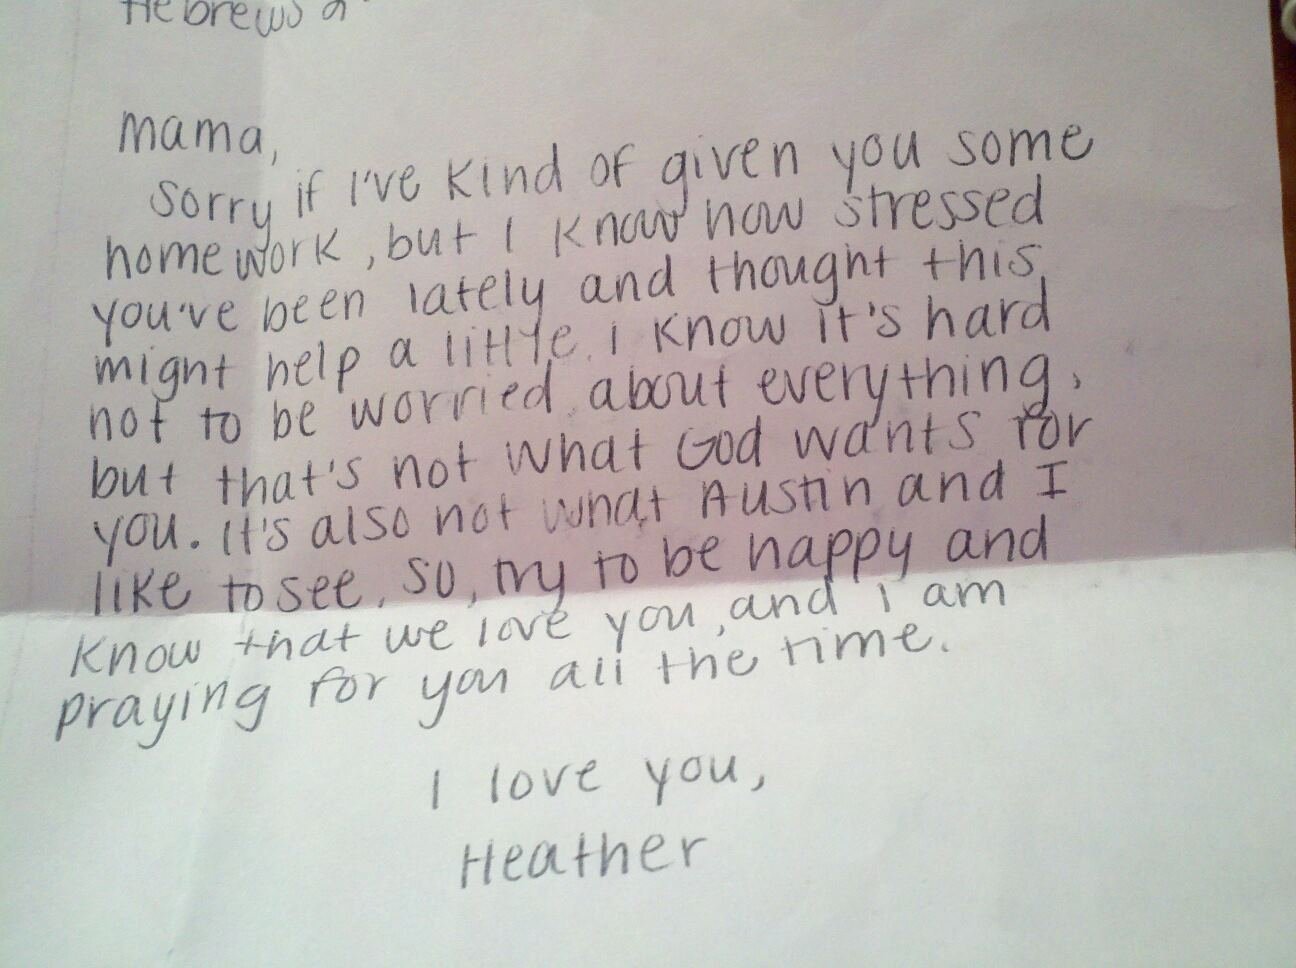 Hebrews
Mama,
Sorry if I've kind of given you some
homework, but I know how stressed
you've been lately and thought this
might help a little. I know it's hard
not to be worried about everything,
but that's not what God wants for
you. It's also not what Austin and I
like to see. So, try to be happy and
know that we love you, and i am
praying for you all the time.
I love you,
Heather